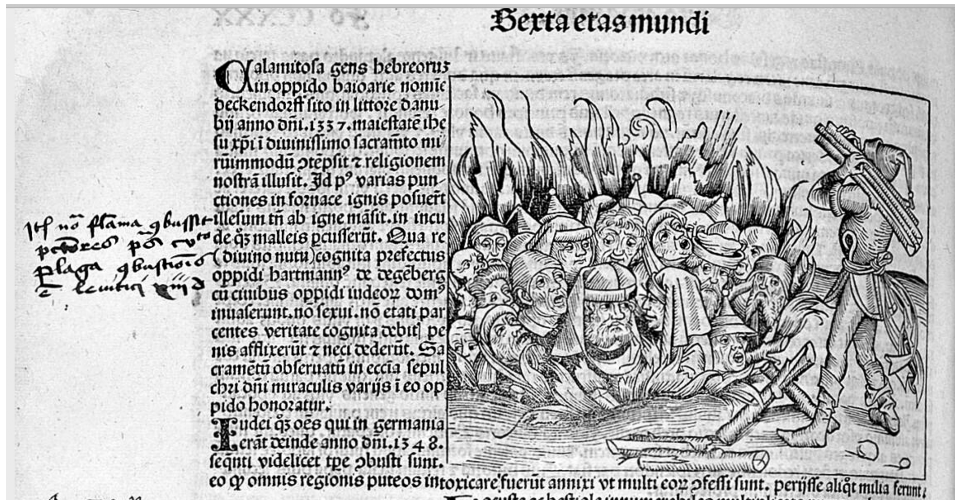 Sexta etas mundi
Calamitosa gens hebreoruʒ
in oppido baioarie nomīe
deckendorff sito in littore danu-
bij anno dñi.1337. maiestatē ihe
su xp̄i ī diuinissimo sacramēto mi
rūimmodū ↄtēpsit ⁊ religionem
nostrā illusit. Id pꝰ varias pun-
ctiones in fornace ignis posuerūt
illesum tñ ab igne māsit. in incu
de qꝫ malleis ꝑcusserūt. Qua re
(diuino nutu) cognita prefectus
oppidi hartmannꝰ de degēberg
cū ciuibus oppidi iudeoꝝ domꝰ
inuaserunt. nō sexui. nō etati par
centes veritate cognita debitꝭ pe
nis afflixerūt ⁊ neci dederūt. Sa
cramētū obseruatū in ecc̄ia sepul
chri dñi miraculis varijs ī eo op
pido honoratur.
Iudei qꝫ oēs qui in germania
erāt deinde anno dñi.1348.
seq̄nti videlicet tꝑe ↄbusti sunt.
eo ꝙ omnis regionis puteos intoxicare fuerūt annixi vt multi eoꝝ ↄfessi sunt. perijsse aliq̄t milia ferunt.
nō flāma ꝯbussit
plaga ꝯbustiōis